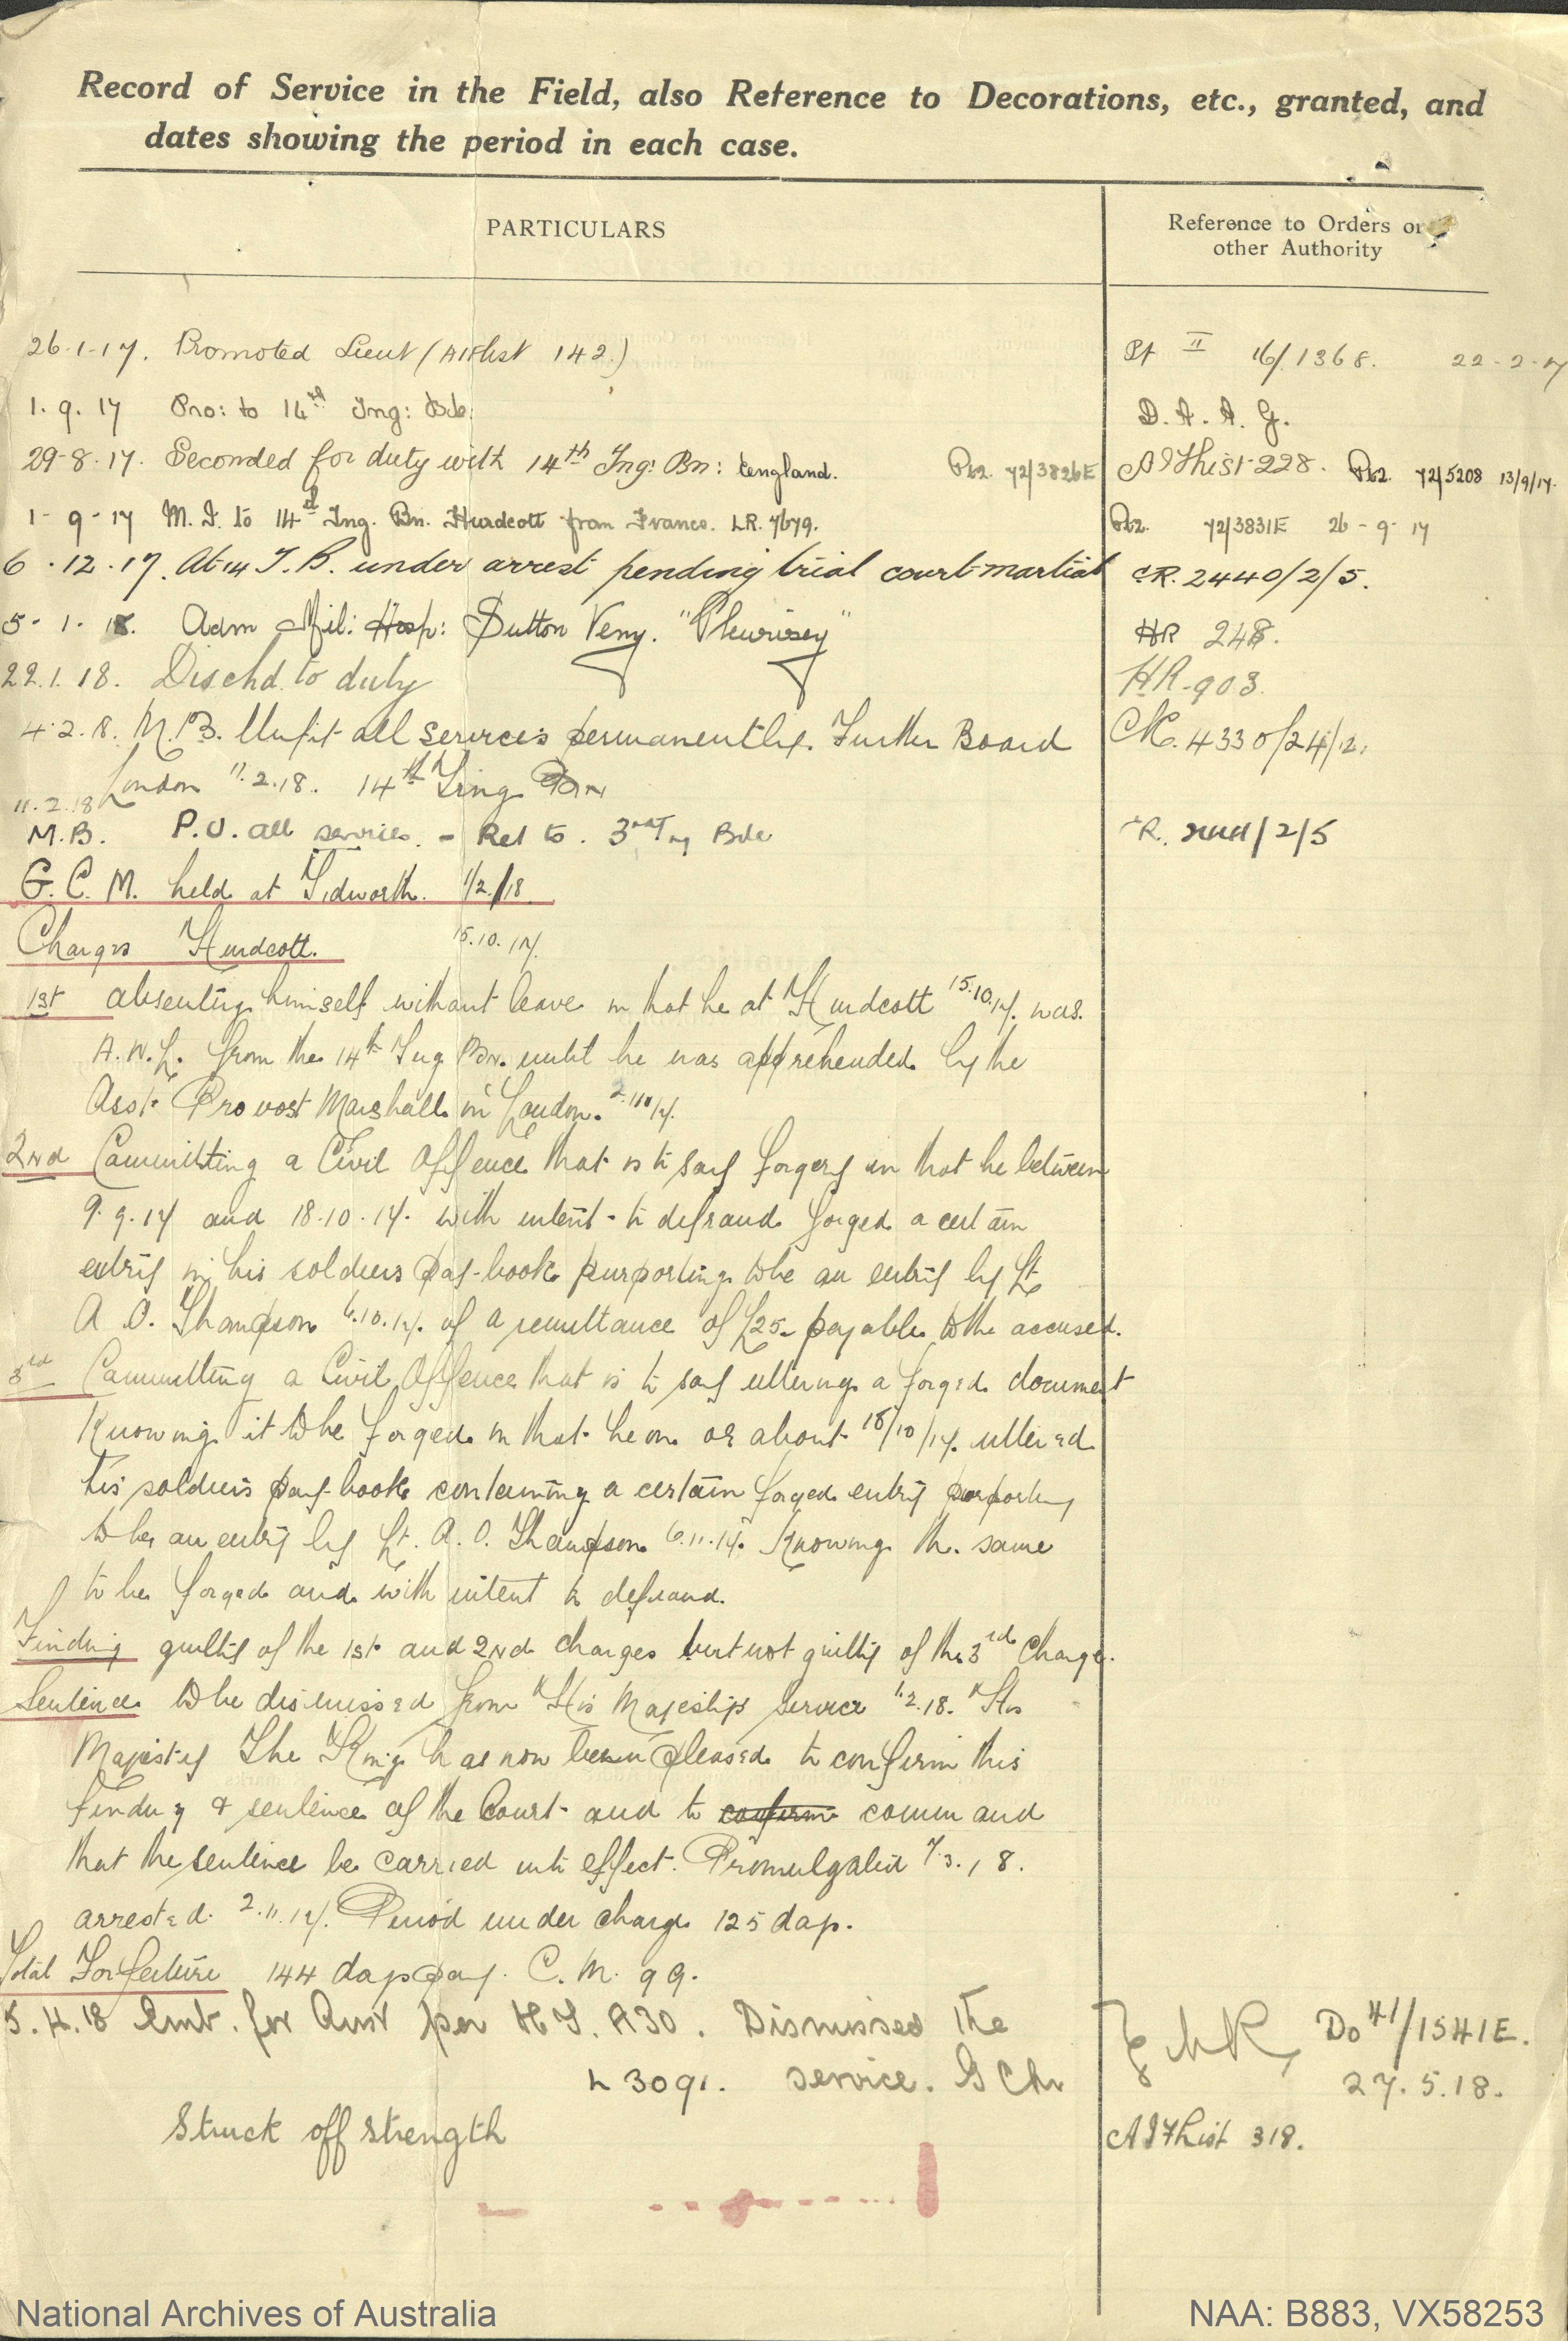 Record of Service in the Field, also Reference to Decorations, etc., granted, and
dates showing the period in each case.
PARTICULARS
Reference to Orders or
other Authority
26-1-17. Promoted Lieut (AIFlist 142.) Pt II 16/1368. 22-2-17
1.9.17 Pro: to 14th Tng: Bde: D.A.A.G.
29-8-17. Seconded for duty with 14th Tng: Bn: England. Pt2. 72/3826E AIFList 228. Pt2. 72/5208 13/9/17.
1-9-17 M.I. to 14th Tng. Bn. Hurdcott from France. LR. 7679. Pt2. 72/3831E 26-9-17
6.12.17. At 14 T.B. under arrest pending trial court-martial CR. 2440/2/5.
5-1-18. Adm Mil: Hosp: Sutton Veny. "Pleurisey" HR 248.
22.1.18. Dischd. to duty HR-903.
4.2.18. M.B. Unfit all services permanently. Further Board 4330/24/2.
London 11.2.18. 14th Trng Bn
11.2.18
M.B. P.U. all services. - Ret to. 3rd Tng Bde R. /2/5
G.C.M. held at Tidworth. 1/2/18
Charges Hurdcott. 15.10.17.
1st absenting himself without leave in that he at Hurdcott 15.10.17. was.
A.W.L. from the 14th Tng Bn. until he was apprehended by the
Asst. Provost Marshall in London. 2.11.17.
2nd Committing a Civil Offence that is to say forgery in that he between
9.9.17 and 18.10.17. with intent to defraud forged a certain
entry in his soldiers pay-book purporting to be an entry by Lt
A. O. Thompson 6.10.17. of a remittance of £25 payable to the accused.
3rd Committing a Civil Offence that is to say uttering a forged document
Knowing it to be forged in that he on or about 18/10/17. uttered
his soldiers pay-book containing a certain forged entry purporting
to be an entry by Lt. A. O. Thompson 6.11.17. Knowing the same
to be forged and with intent to defraud.
Finding guilty of the 1st and 2nd charges but not guilty of the 3rd Charge.
Sentence to be dismissed from His Majesty's Service 1.2.18. His
Majesty The King has now been pleased to confirm this
finding & sentence of the Court and to confirm command
that the sentence be carried into effect. Promulgated 7.3.18.
arrested. 2.11.17. Period under charge 125 days.
Total Forfeiture 144 days pay. C.M. 99.
5.4.18 Emb. for Aust per H.T. A30. Dismissed the Do 41/1541E.
L 3091. service. GCM 27.5.18.
Struck off strength AIFList 318.
National Archives of Australia
NAA: B883, VX58253